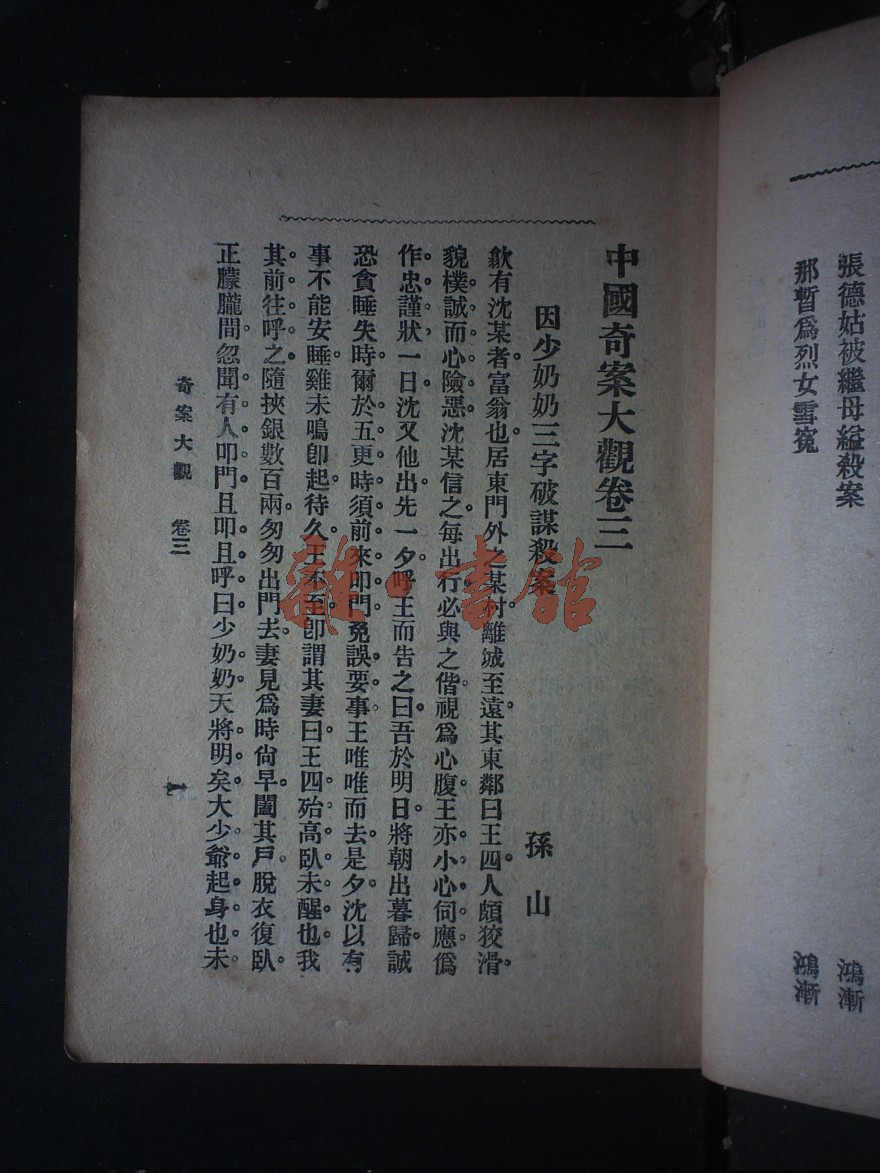 張德姑被繼母縊殺案 鴻漸
那暫爲烈女雪寃 鴻漸
中國奇案大觀卷三
因少奶奶三字破謀殺案 孫山
歙有沈某者富翁也居東門外之某村。離城至遠。其東鄰曰王四。人頗狡滑。
貌樸誠而心險惡。沈某信之。每出行必與之偕。視爲心腹。王亦小心伺應。僞
作忠謹狀。一日沈又他出。先一夕。呼王而告之曰。吾於明日將朝出暮歸。誠
恐貪睡失時。爾於五更時須前來叩門。免誤要事。王唯唯而去。是夕沈以有
事不能安睡。雞未鳴卽起。待久。王不至。卽謂其妻曰。王四殆高臥未醒也。我
其前往呼之。隨挾銀數百兩。匆匆出門去。妻見爲時尙早。闔其戶。脫衣復臥。
正朦朧間。忽聞有人叩門。且叩且呼曰。少奶奶。天將明矣。大少爺起身也未。
奇案大觀 卷三
一
雜·書館